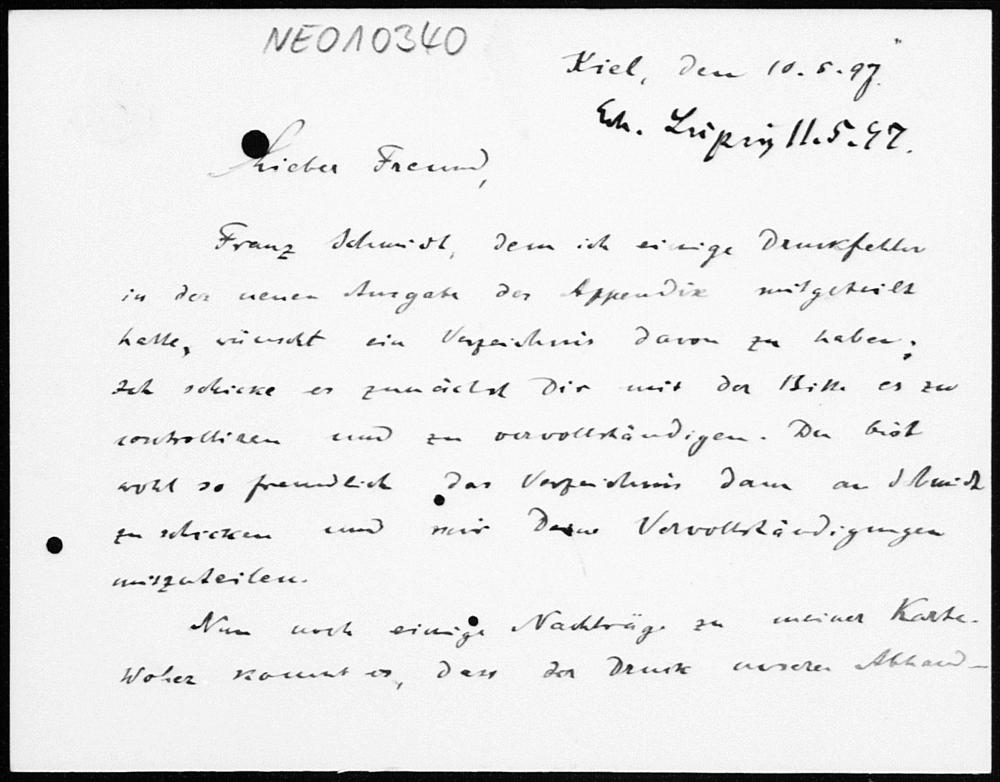 NEO10340
Kiel, den 10.5.97
Erh. Leipzig 11.5.97.
Lieber Freund,
Franz Schmidt, dem ich einige Druckfehler
in der neuen Ausgabe des Appendix mitgeteilt
hatte, wünscht ein Verzeichnis davon zu haben;
Ich schicke es zunächst Dir mit der Bitte es zu
controlliren und zu vervollständigen. Du bist
wohl so freundlich das Verzeichnis dann an Schmidt
zu schicken und mir Deine Vervollständigungen
mitzuteilen.
Nun noch einige Nachträge zu meiner Karte.
Woher kommt es, dass der Druck unserer Abhand-